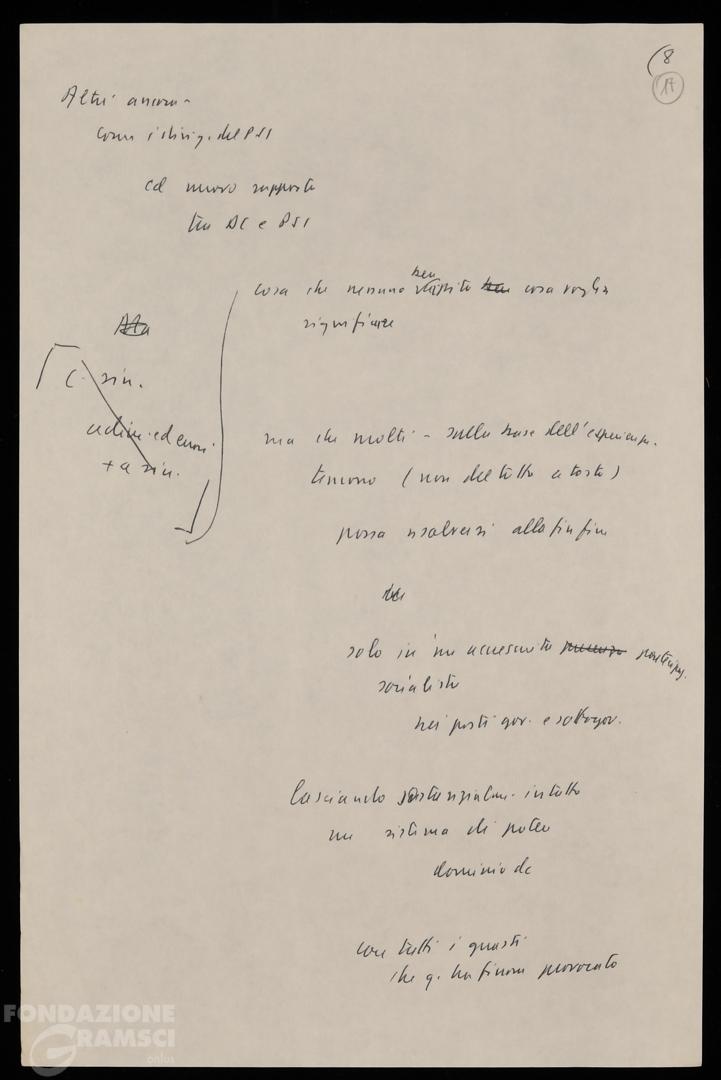 (8
17
Altri ancora -
come i dirig. del PSI
ad nuovo rapporto
tra DC e PSI
cosa che nessuno ben capito ben cosa voglia
significare
Ma
C. sin.
ed
+ a sin.
ma che molti - sulla base dell'esperienza.
temono (non del tutto a torto)
possa risolversi alla fin fine
solo in un accresciuto partecipaz.
socialista
nei posti gov. e sottogov.
lasciando sostanzialm. intatto
un sistema di potere
dominio dc
con tutti i guasti
che q. ha finora provocato
FONDAZIONE
GRAMSCI
onlus